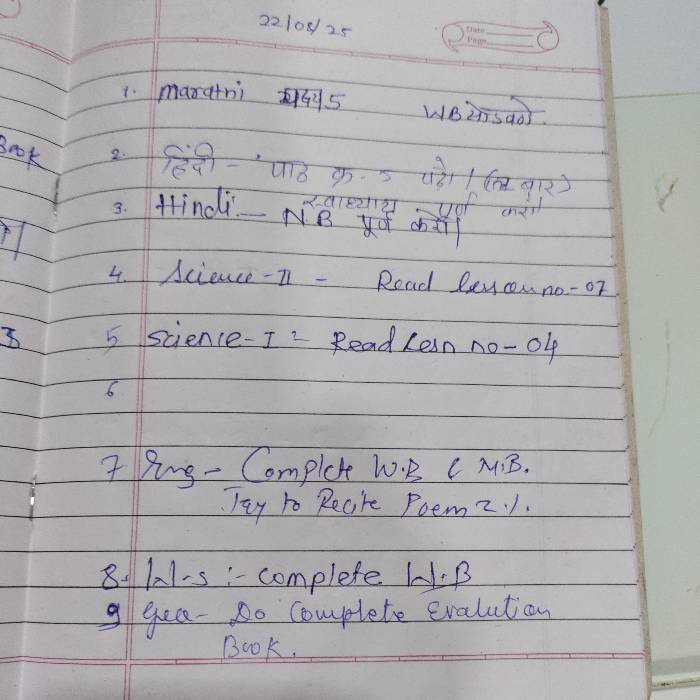 22/08/25
Date
Page
Book
1. marathi गद्य 5 WB
2. हिंदी - पाठ क्र. 5 पढ़ो। ( बार)
स्वाध्याय पूर्ण करो।
3. Hindi - N.B पूर्ण करो।
4. Science-II - Read lesson no-07
5 Science-I - Read Lesn no-04
6
7 Eng - Complete W.B & N.B.
Try to Recite Poem 2.1.
8. W-s :- complete W.B
9 Geo- Do Complete Evalution
Book.